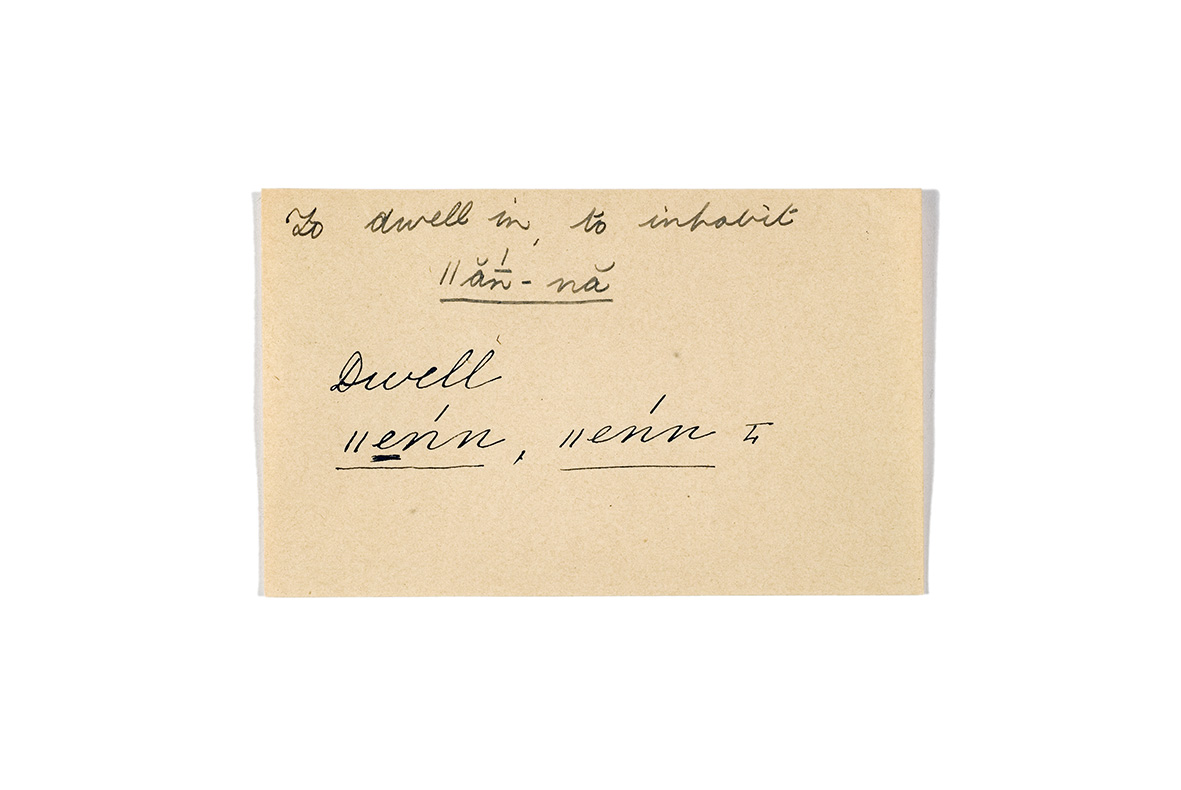 To dwell in, to inhabit
ǁăn̄́ - nă
Dwell
ǁe̱ńn, ǁeńn